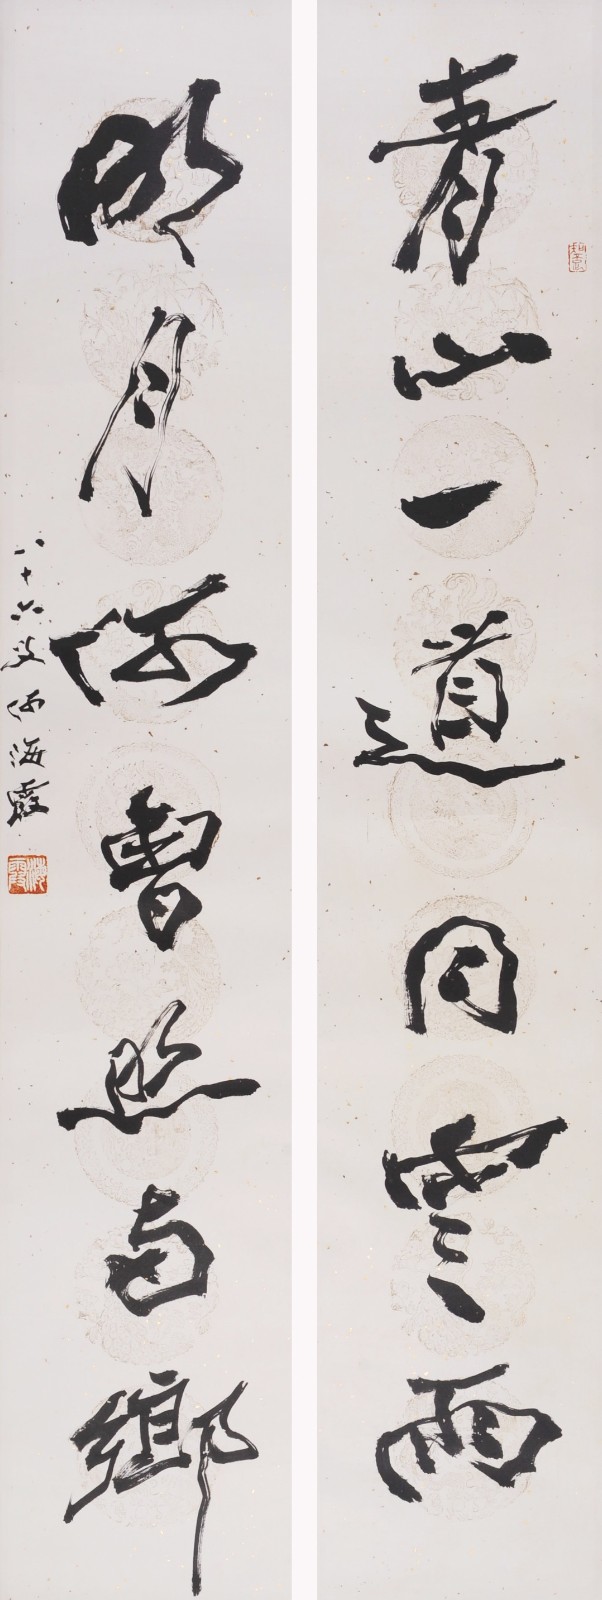 青山一道同雲雨
明月何曾照兩鄉
八十六叟何海霞
海霞